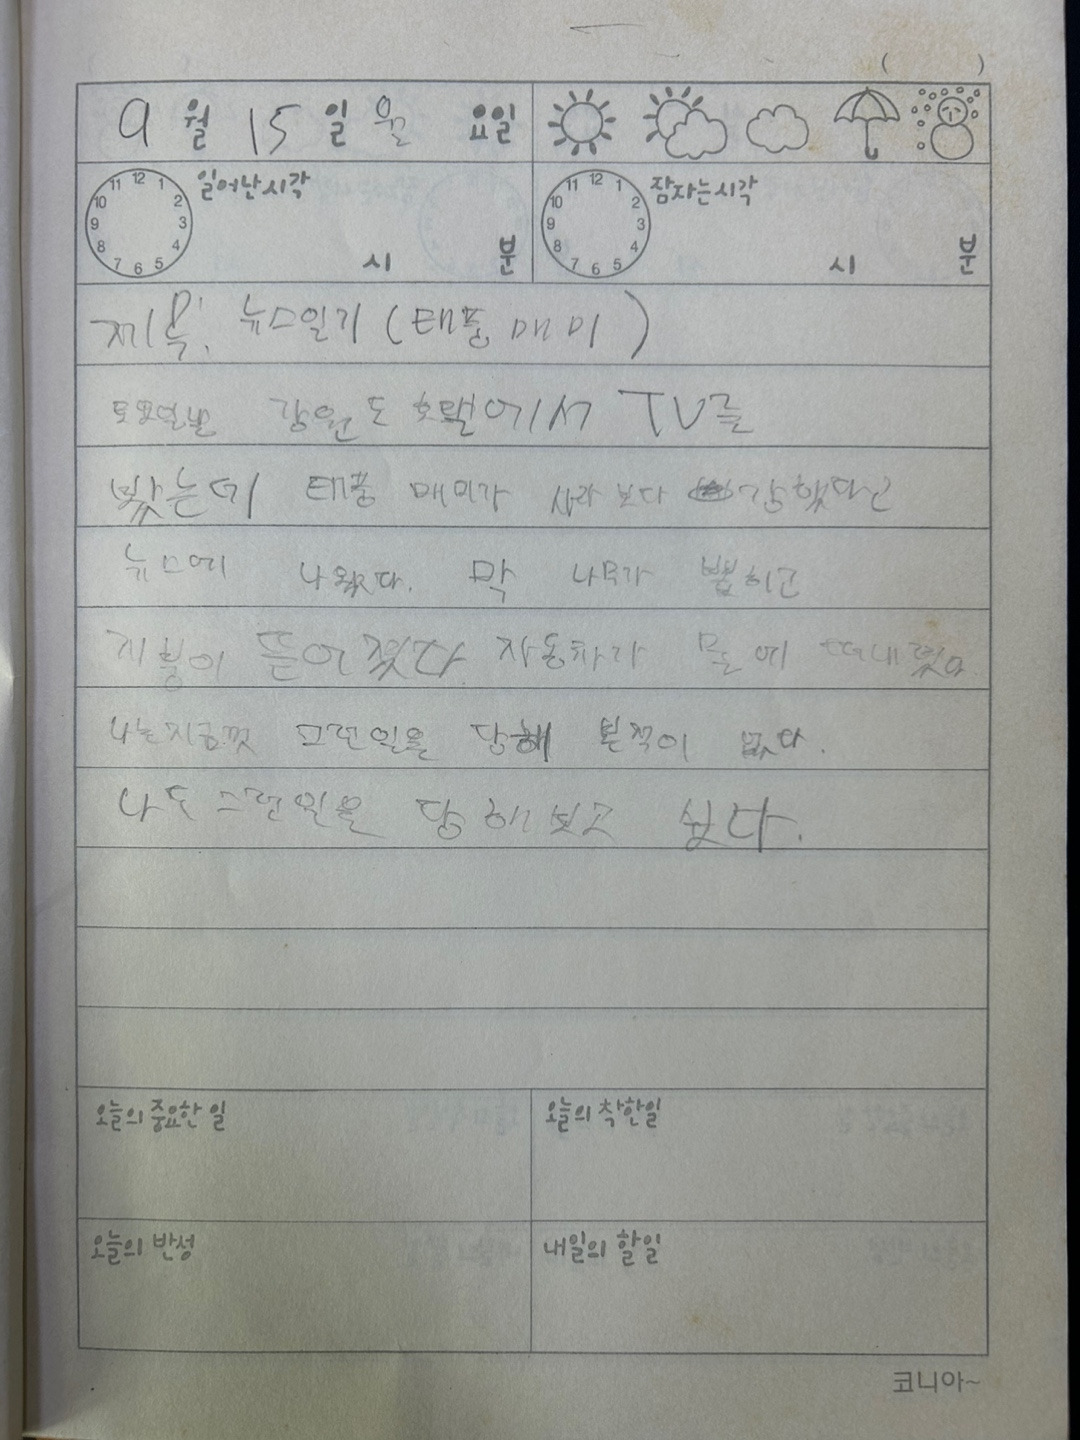 ( )
9 월 15 일 월 요일
12 1 2 3 4 5 6 7 8 9 10 11 일어난시각 시 분
12 1 2 3 4 5 6 7 8 9 10 11 잠자는시각 시 분
제목: 뉴스일기 (태풍 매미)
토요일날 강원도 호텔에서 TV를
봤는데 태풍 매미가 사라 보다 강했다고
뉴스에 나왔다. 막 나무가 뽑히고
지붕이 뜯어졌다. 자동차가 물에
나는 지금껏 그런일을 당해 본적이 없다.
나도 그런일을 당해보고 싶다.
오늘의 중요한 일 오늘의 착한일
오늘의 반성 내일의 할일
코니아~